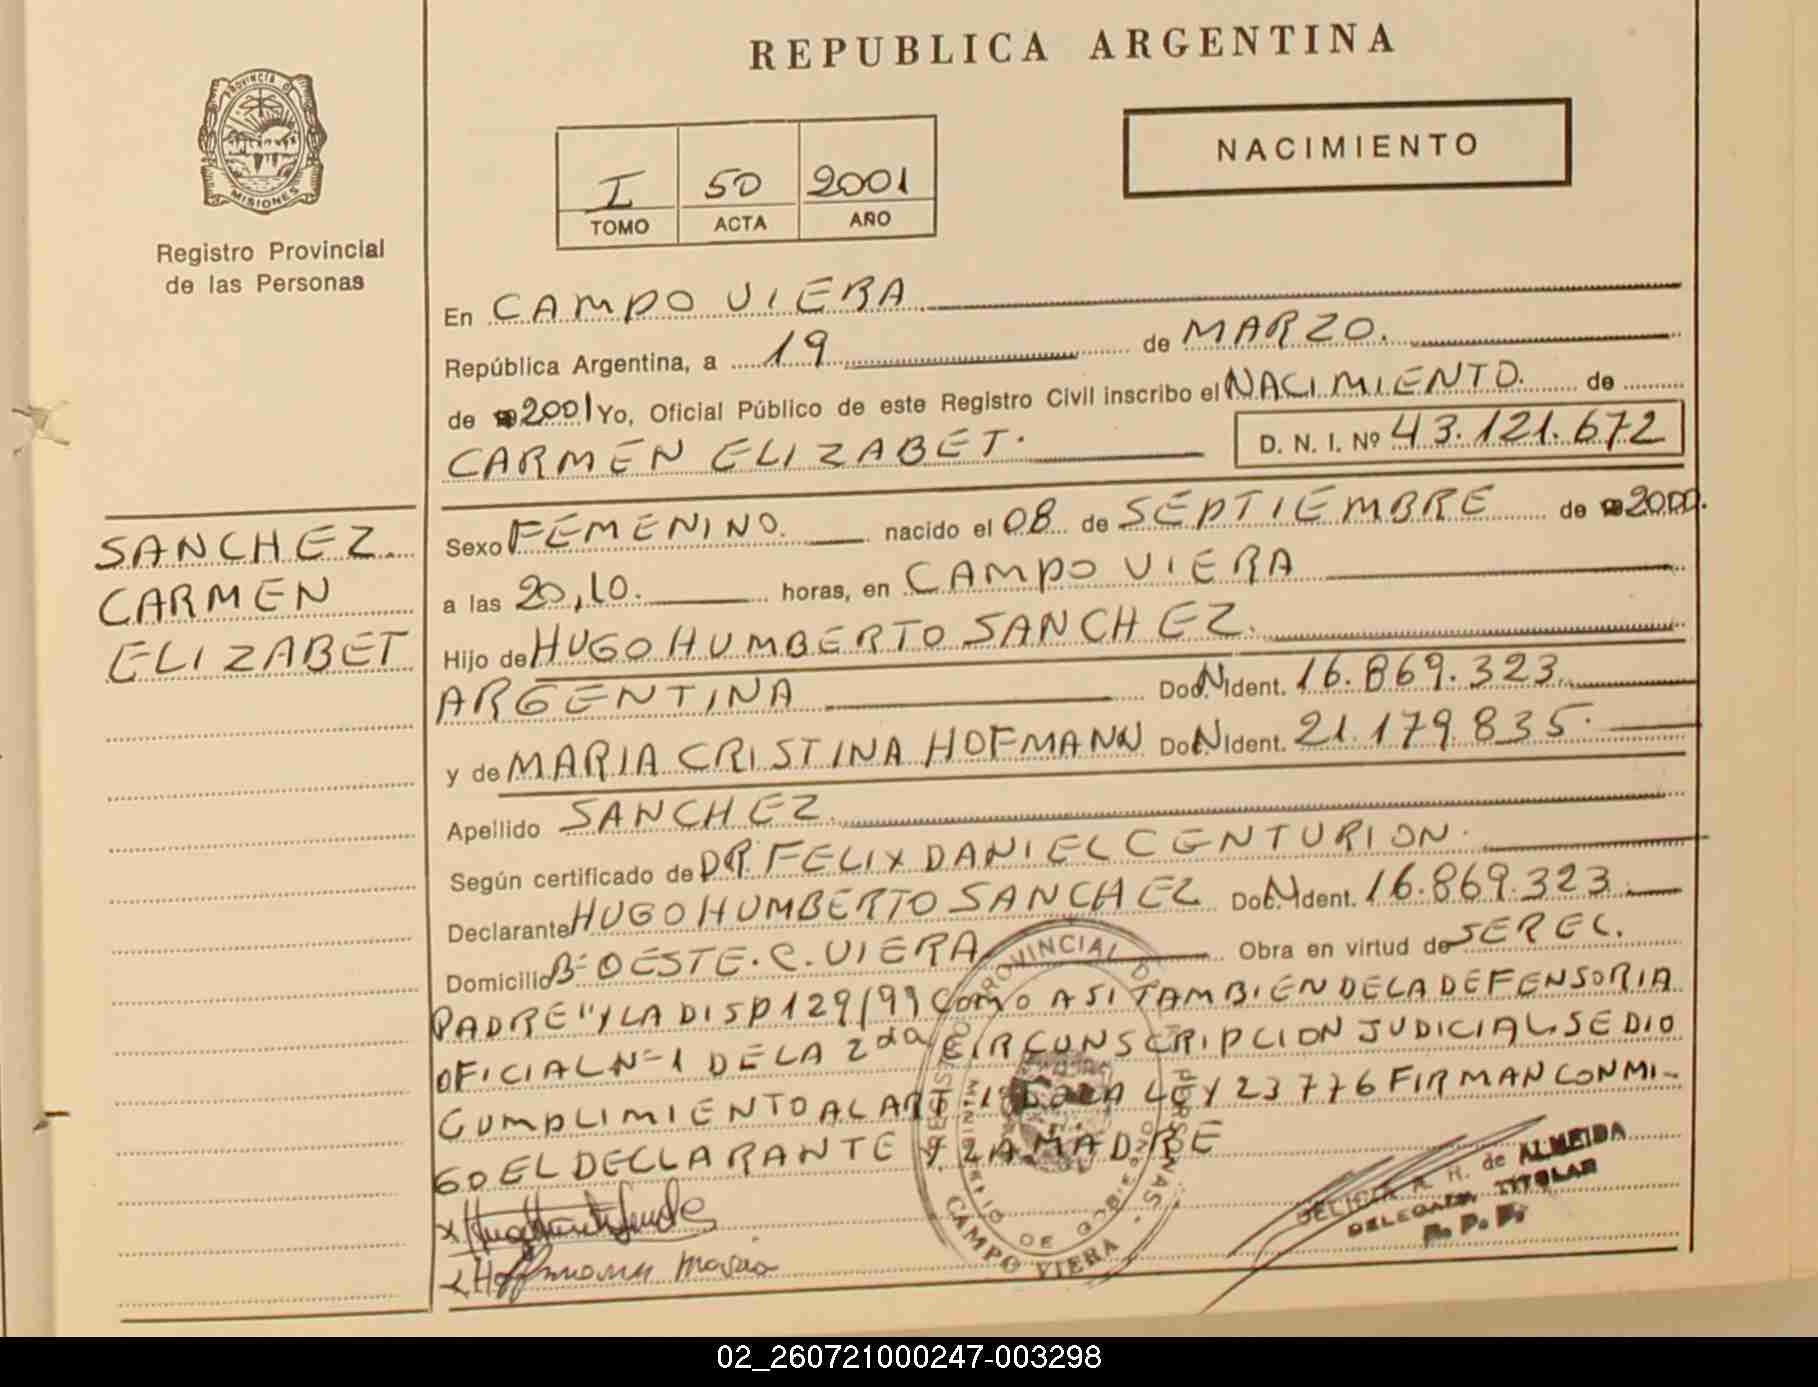 REPUBLICA ARGENTINA
PROVINCIA DE
MISIONES
Registro Provincial
de las Personas
I 50 2001
TOMO ACTA AÑO
NACIMIENTO
En CAMPO VIERA
República Argentina, a 19 de MARZO.
de 2001 Yo, Oficial Público de este Registro Civil inscribo el NACIMIENTO. de
CARMEN ELIZABET. D. N. I. Nº 43.121.672
SANCHEZ.
CARMEN
ELIZABET
Sexo FEMENINO. nacido el 08 de SEPTIEMBRE de 2000.
a las 20,10. horas, en CAMPO VIERA
Hijo de HUGO HUMBERTO SANCHEZ.
ARGENTINA Doc. N Ident. 16.869.323.
y de MARIA CRISTINA HOFMANN Doc. N Ident. 21.179.835.
Apellido SANCHEZ.
Según certificado de DR. FELIX DANIEL CENTURION.
Declarante HUGO HUMBERTO SANCHEZ Doc. N Ident. 16.869.323.
Domicilio Bº OESTE. C. VIERA Obra en virtud de SER EL.
PADRE" Y LA DISP 129/99 COMO ASI TAMBIEN DE LA DEFENSORIA
OFICIAL Nº 1 DE LA 2da CIRCUNSCRIPCION JUDICIAL. SE DIO
CUMPLIMIENTO AL ART 1º DE LA LEY 23776 FIRMAN CONMI-
GO EL DECLARANTE Y LA MADRE
REGISTRO PROVINCIAL DE LAS PERSONAS
MINISTERIO DE GOBIERNO
CAMPO VIERA
x Hoffmann Maria
DELICIA R. H. de ALMEIDA
DELEGADA TITULAR
R. P. P.
02_260721000247-003298